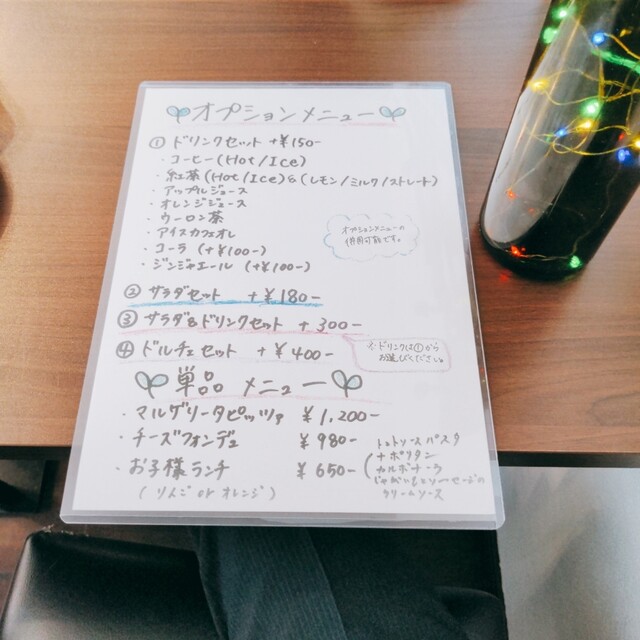 オプションメニュー
① ドリンクセット +¥150-
・コーヒー(Hot/Ice)
・紅茶(Hot/Ice)&(レモン/ミルク/ストレート)
・アップルジュース
・オレンジジュース
・ウーロン茶
・アイスカフェオレ
・コーラ (+¥100-)
・ジンジャエール (+¥100-)
オプションメニューの
併用可能です。
② サラダセット +¥180-
③ サラダ&ドリンクセット +300-
④ ドルチェセット +¥400-
※ドリンクは①から
お選びください。
単品 メニュー
・マルゲリータピッツァ ¥1,200-
・チーズフォンデュ ¥980-
・お子様ランチ ¥650-
(りんご or オレンジ)
トマトソースパスタ
ナポリタン
カルボナーラ
じゃがいもとソーセージの
クリームソース